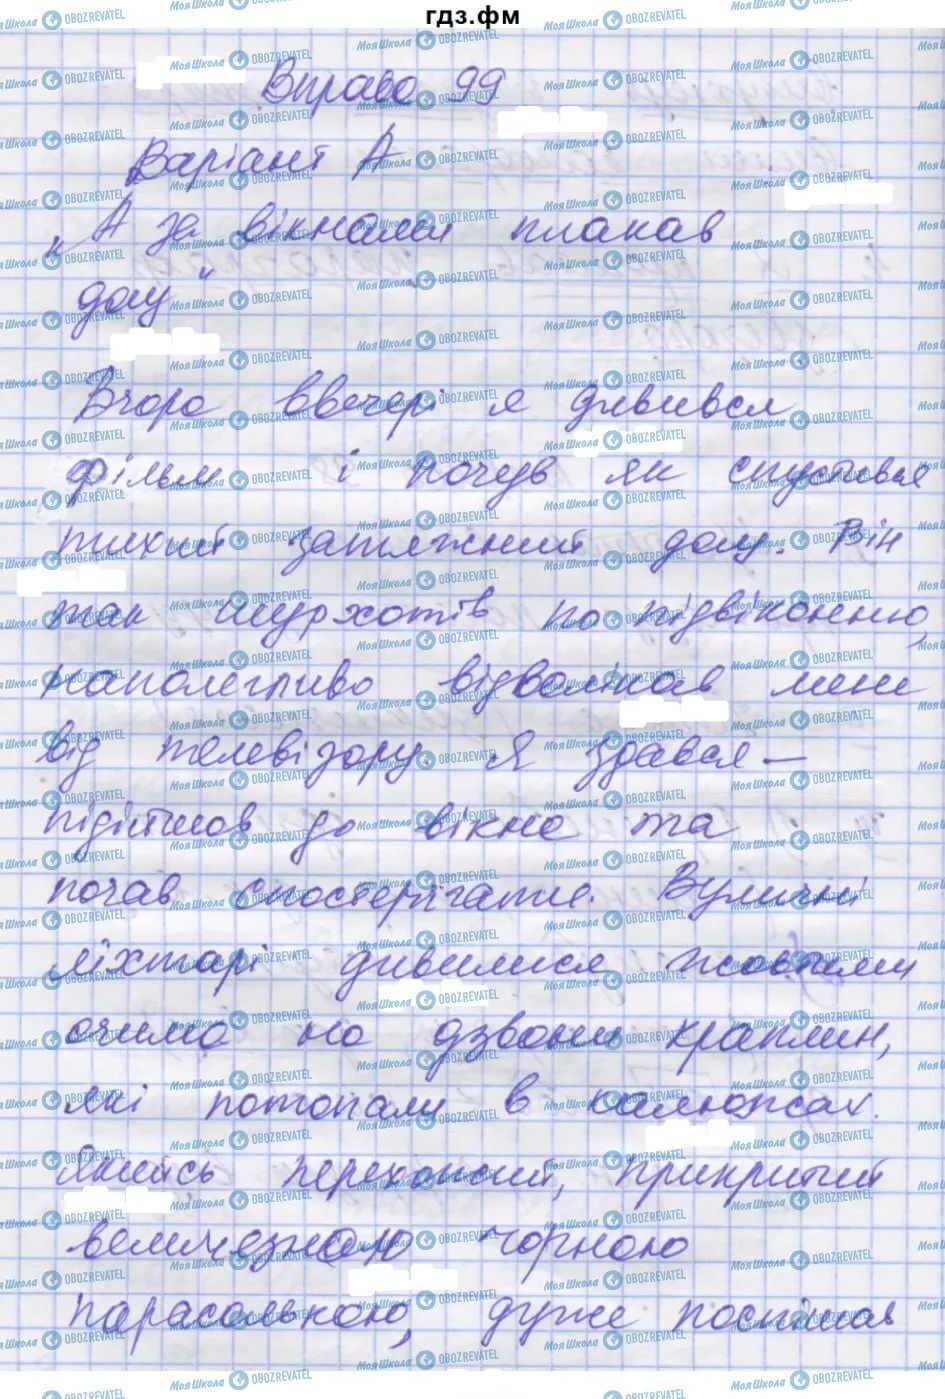 гдз.фм
Вправа 99
Варіант А
„А за вікнами плакав
дощ"
Вчора ввечері я дивився
фільм і почув як спустився
тихий затяжний дощ. Він
так шурхотів по підвіконню,
наполегливо відволікав мене
від телевізору. Я здався –
підійшов до вікна та
почав спостерігати. Вуличні
ліхтарі дивилися жовтими
очима на дзвони краплин,
які потопали в калюжах.
Якийсь перехожий, прикритий
величезною чорною
парасолькою, дуже поспішав